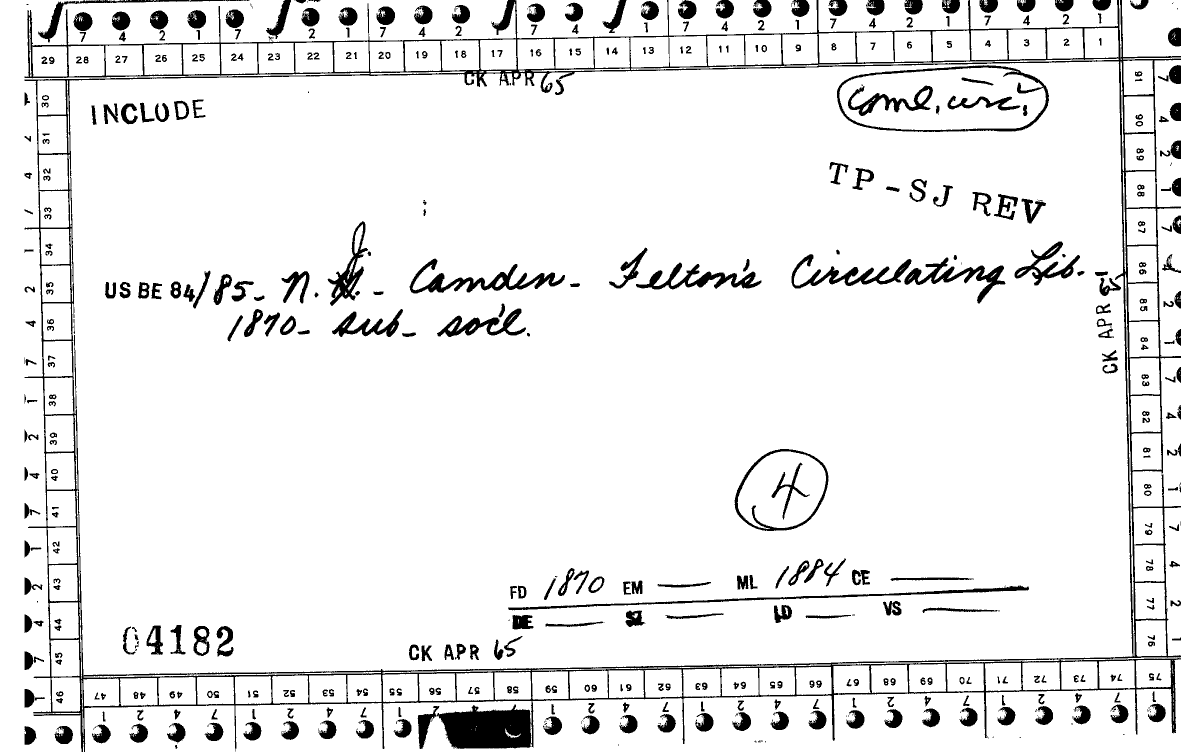 7 4 2 1 7 2 1 7 4 2 1 7 4 2 1 7 4 2 1 7 4 2 1
29 28 27 26 25 24 23 22 21 20 19 18 17 16 15 14 13 12 11 10 9 8 7 6 5 4 3 2 1
CK APR 65
INCLUDE
coml. circ.
TP-SJ REV
J.
US BE 84/85- N. - Camden- Felton's Circulating Lib.
1870- sub- soc'l.
CK APR 65
4
FD 1870 EM — ML 1884 CE —
DE — SZ — LD — VS —
04182
CK APR 65
30 31 32 33 34 35 36 37 38 39 40 41 42 43 44 45 46
47 48 49 50 51 52 53 54 55 56 57 58 59 60 61 62 63 64 65 66 67 68 69 70 71 72 73 74 75
76 77 78 79 80 81 82 83 84 85 86 87 88 89 90 91